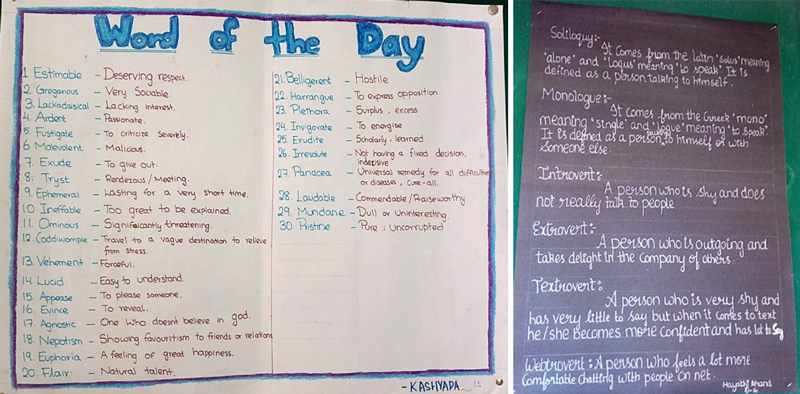 Word of the Day
1 Estimable - Deserving respect.
2. Gregarious - Very Sociable.
3. Lackadaisical - Lacking interest.
4. Ardent - Passionate.
5. Fustigate - To criticize severely.
6 Malevolent - Malicious.
7. Exude - To give out.
8. Tryst - Rendezous / Meeting.
9. Ephemeral - Lasting for a very short time.
10. Ineffable - Too great to be explained.
11. Ominous - Significantly threatening.
12. Coddiwomple - Travel to a vague destination to relieve
from stress.
13 Vehement - Forceful.
14 Lucid - Easy to understand.
15. Appease - To please someone.
16. Evince - To reveal.
17. Agnostic - One who doesnt believe in god.
18. Nepotism - Showing favouritism to friends or relations
19. Euphoria - A feeling of great happiness.
20. Flair - Natural talent.
21. Belligerent - Hostile
22. Harrangue - To express opposition
23. Plethora - Surplus, excess
24. Invigorate - To energise
25. Erudite - Scholarly, learned
26. Irresolute - Not having a fixed decision,
indecisive
27. Panacea - Universal remedy for all difficulties
or diseases, cure-all.
28. Laudable - Commendable / Raiseworthy
29. Mundane - Dull or Uninteresting.
30. Pristine - Pure, Uncorrupted
- KASHYADA
Soliloquy:-
It comes from the Latin 'Solus' meaning
'alone' and 'Loqus' meaning 'to speak'. It is
defined as a person talking to himself.
Monologue:-
It comes from the Greek 'mono'
meaning 'single' and 'logue' meaning 'to speak'.
It is defined as a person talking to himself or with
Someone else.
Introvert:-
A person who is shy and does
not really talk to people.
Extrovert:-
A person who is outgoing and
takes delight in the company of others.
Textrovert:-
A person who is very shy and
has very little to say but when it comes to text
he/she becomes more Confident and has lot to Say
Webtrovert: A person who feels a lot more
Comfortable Chatting with people on net.
Anand